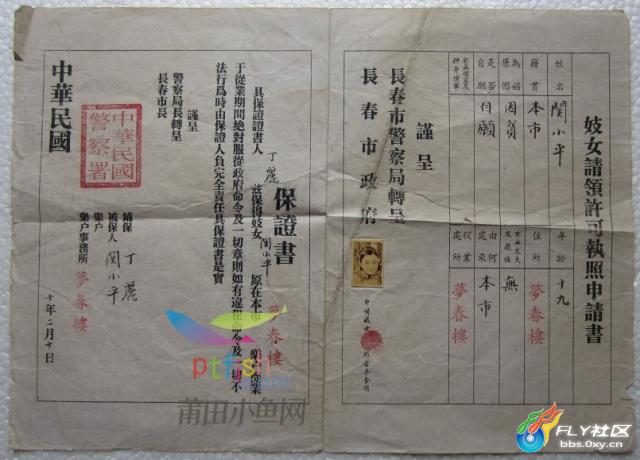 妓女請領許可執照申請書
姓名 関小平 年齡 十九
籍貫 本市 住所 夢春樓
為娼原因 因貧 無
是否自願 自願 由何處來 本市
從業處所 夢春樓
謹呈
長春市警察局轉呈
長春市政府
保證書
具保證書人 丁麗 茲保得妓女 関小平 原在本市 夢春樓 樂戶從業
于從業期間絶對服從政府命令及一切章則如有違犯命令及一切不
法行爲時由保證人負完全責任具保證書是實
謹呈
警察局長轉呈
長春市長
鋪保 丁麗
被保人 関小平
樂户
樂户事務所 夢春樓
十年二月十日
中華民國
中華民國
警察署
ptfish
莆田小鱼网
FLY社区
bbs.0xy.cn